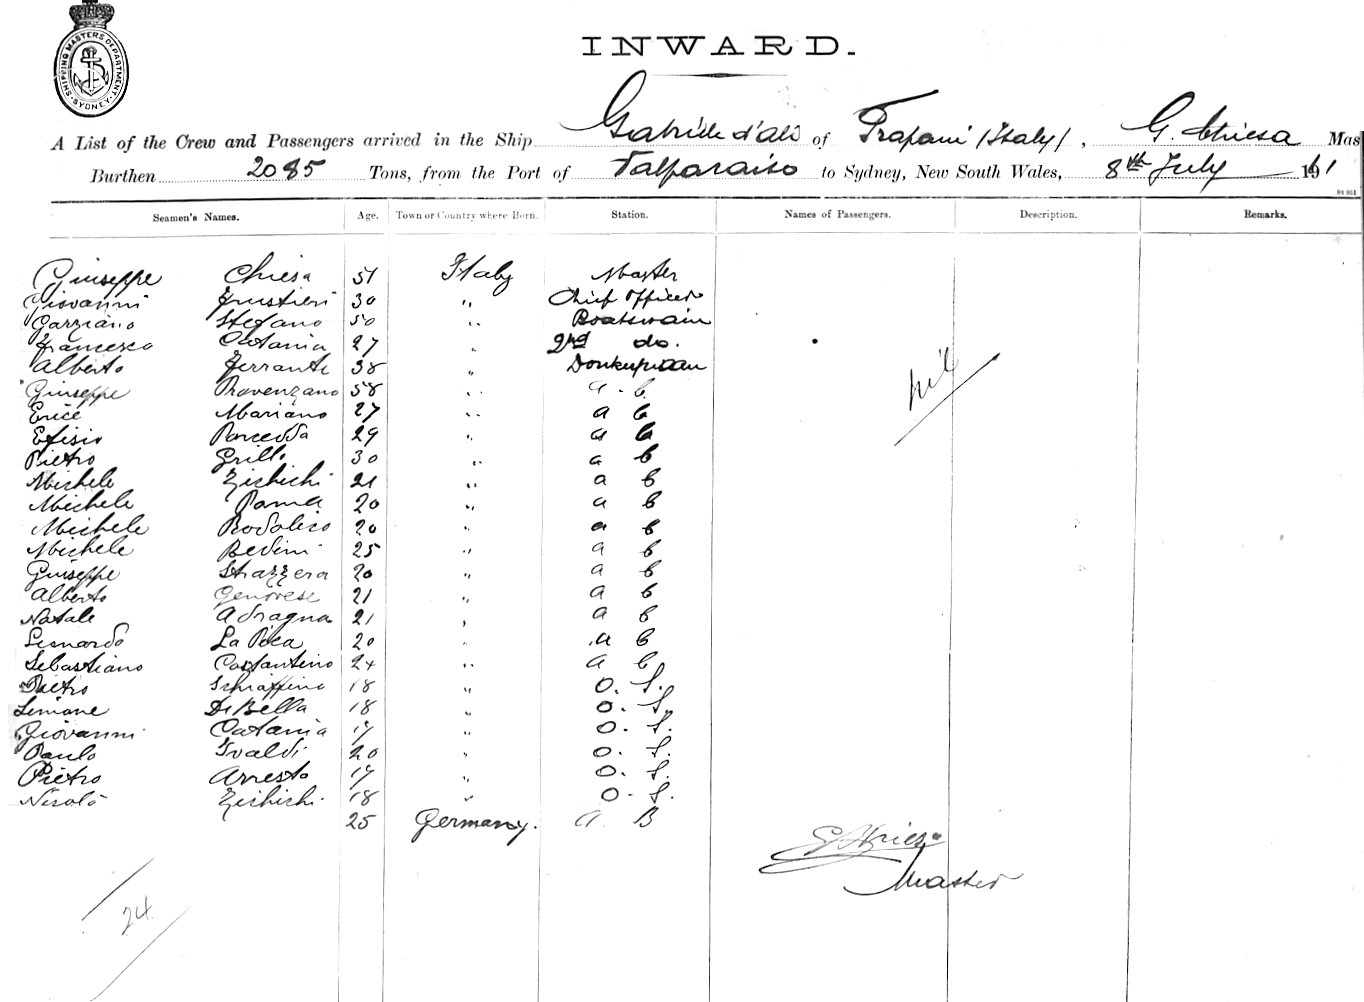 SHIPPING MASTERS DEPARTMENT
SYDNEY
INWARD.
A List of the Crew and Passengers arrived in the Ship Gabriele d'Ali of Trapani (Italy), G. Chiesa Mas
Burthen 2085 Tons, from the Port of Valparaiso to Sydney, New South Wales, 8th July 191
Seamen's Names. Age. Town or Country where Born. Station. Names of Passengers. Description. Remarks.
Giuseppe Chiesa 51 Italy Master
Giovanni 30 " Chief Officer
Garziano Stefano 50 " Boatswain
Francesco Catania 27 " 2nd do.
Alberto Ferrante 38 " Donkeyman
Giuseppe Provenzano 58 " a. b.
Erice Mariano 27 " a b
Efisio Porcedda 29 " a b
Pietro Grillo 30 " a b
Michele Zichichi 21 " a b
Michele Poma 20 " a b
Michele Rodolico 20 " a b
Michele Bedini 25 " a b
Giuseppe Strazzera 20 " a b
Alberto Genovese 21 " a b
Natale Adragna 21 " a b
Leonardo La Poca 20 " a b
Sebastiano Costantino 24 " a b
Pietro Schiaffino 18 " O. S.
Simone Di Bella 18 " O. S.
Giovanni Catania 17 " O. S.
Paulo Ivaldi 20 " O. S.
Pietro Arresto 17 " O. S.
Nicolò Zichichi 18 " O. S.
25 Germany. a. B
nil
G Chiesa
Master
24